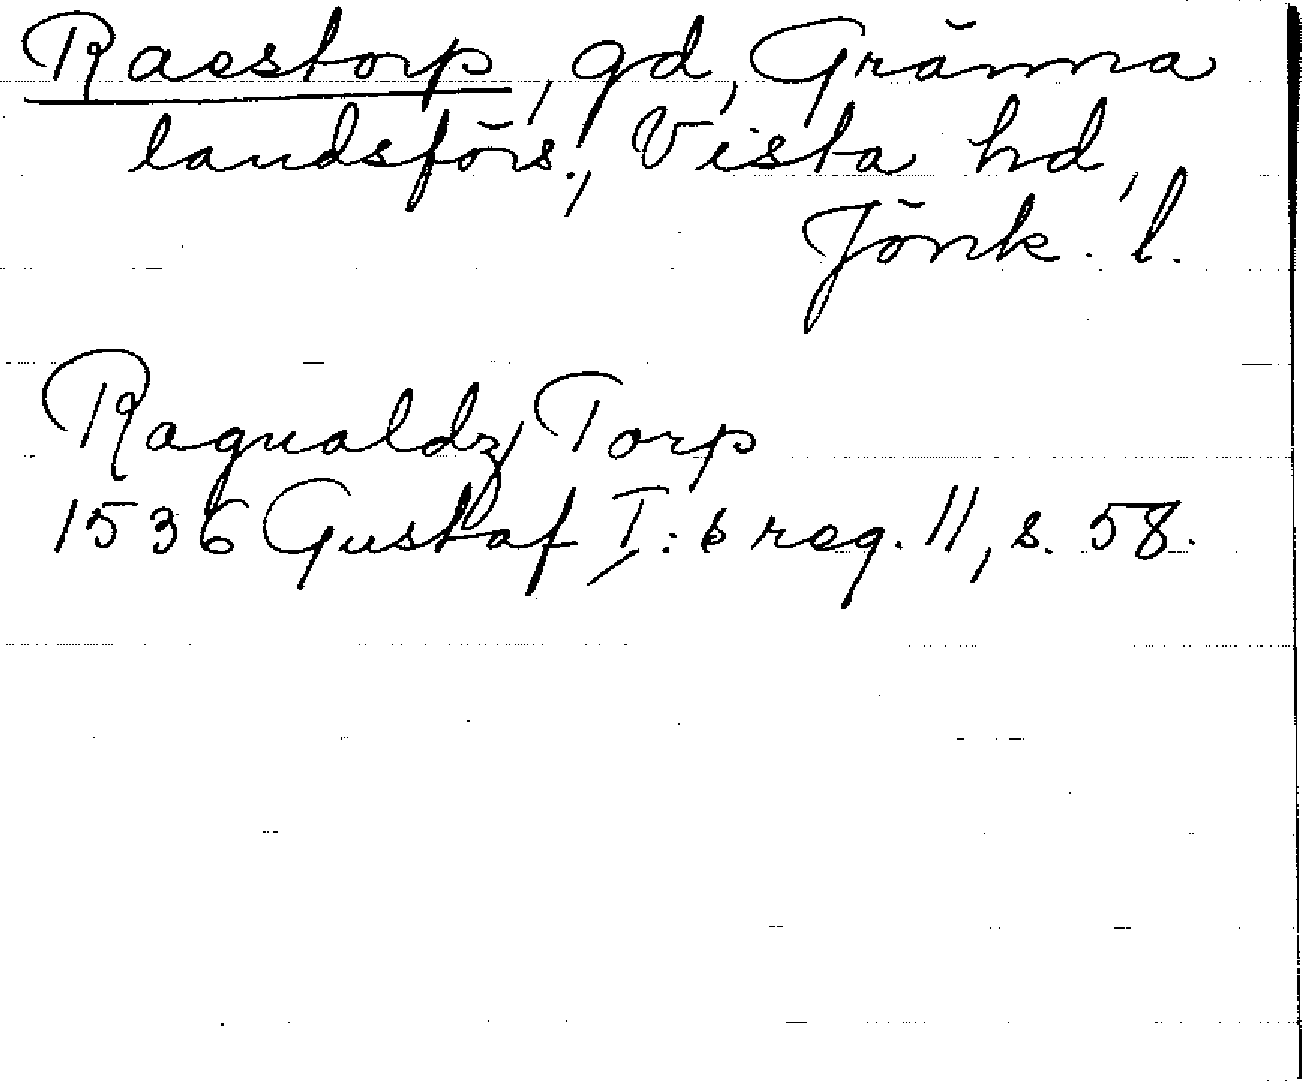 Raestorp, gd, Gränna
landsförs., Vista hd,
Jönk. l.
Ragualdz Torp
1536 Gustaf I:s reg. 11, s. 58.